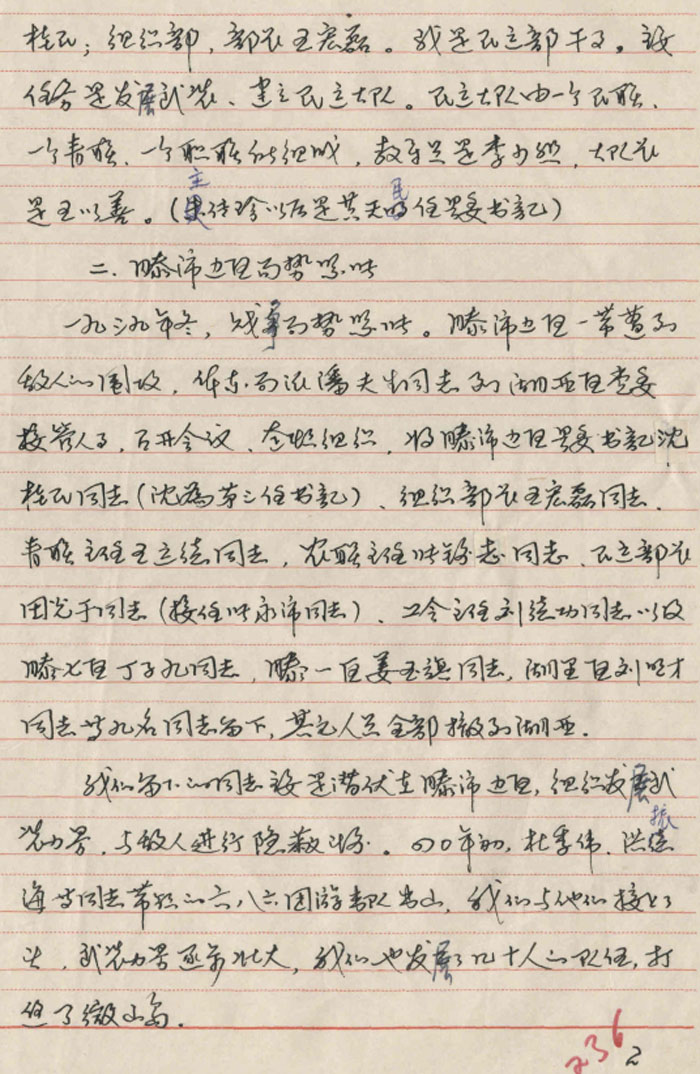 桂民；组织部，部长王宏磊。我是民运部干事。主要
任务是发展武装、建立民运大队。民运大队由一个民联、
一个青联、一个职联的组成，教导员是李少然，大队长
是王以善。（ 主 传珍以后是其天 任县委书记）
二、滕沛边区局势恶化
一九三九年冬，战争局势恶化。滕沛边区一带遭到
敌人的围攻，华东局派潘夫生同志到湖西区党委
接管人事，召开会议、整顿组织，将滕沛边区县委书记沈
桂民同志（沈为第三任书记）、组织部长王宏磊同志、
青联主任王立德同志，农联主任 同志、民运部长
田光于同志（接任 永沛同志）、工会主任刘德功同志以及
滕七区丁子九同志，滕一区姜玉旗同志，湖里区刘明才
同志等九名同志留下，其它人员全部撤到湖西。
我们留下的同志主要是潜伏在滕沛边区，组织发展武
装力量，与敌人进行隐蔽斗争。四〇年初，杜季伟、洪振
海等同志带领的六八六团游击队出山，我们与他们接上了
头，武装力量逐步壮大，我们也发展了几十人的队伍，打
进了微山岛。
236
2